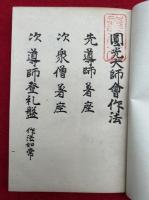 圓光大師會作法
先導師著座
次衆僧著座
次導師登礼盤 作法如常